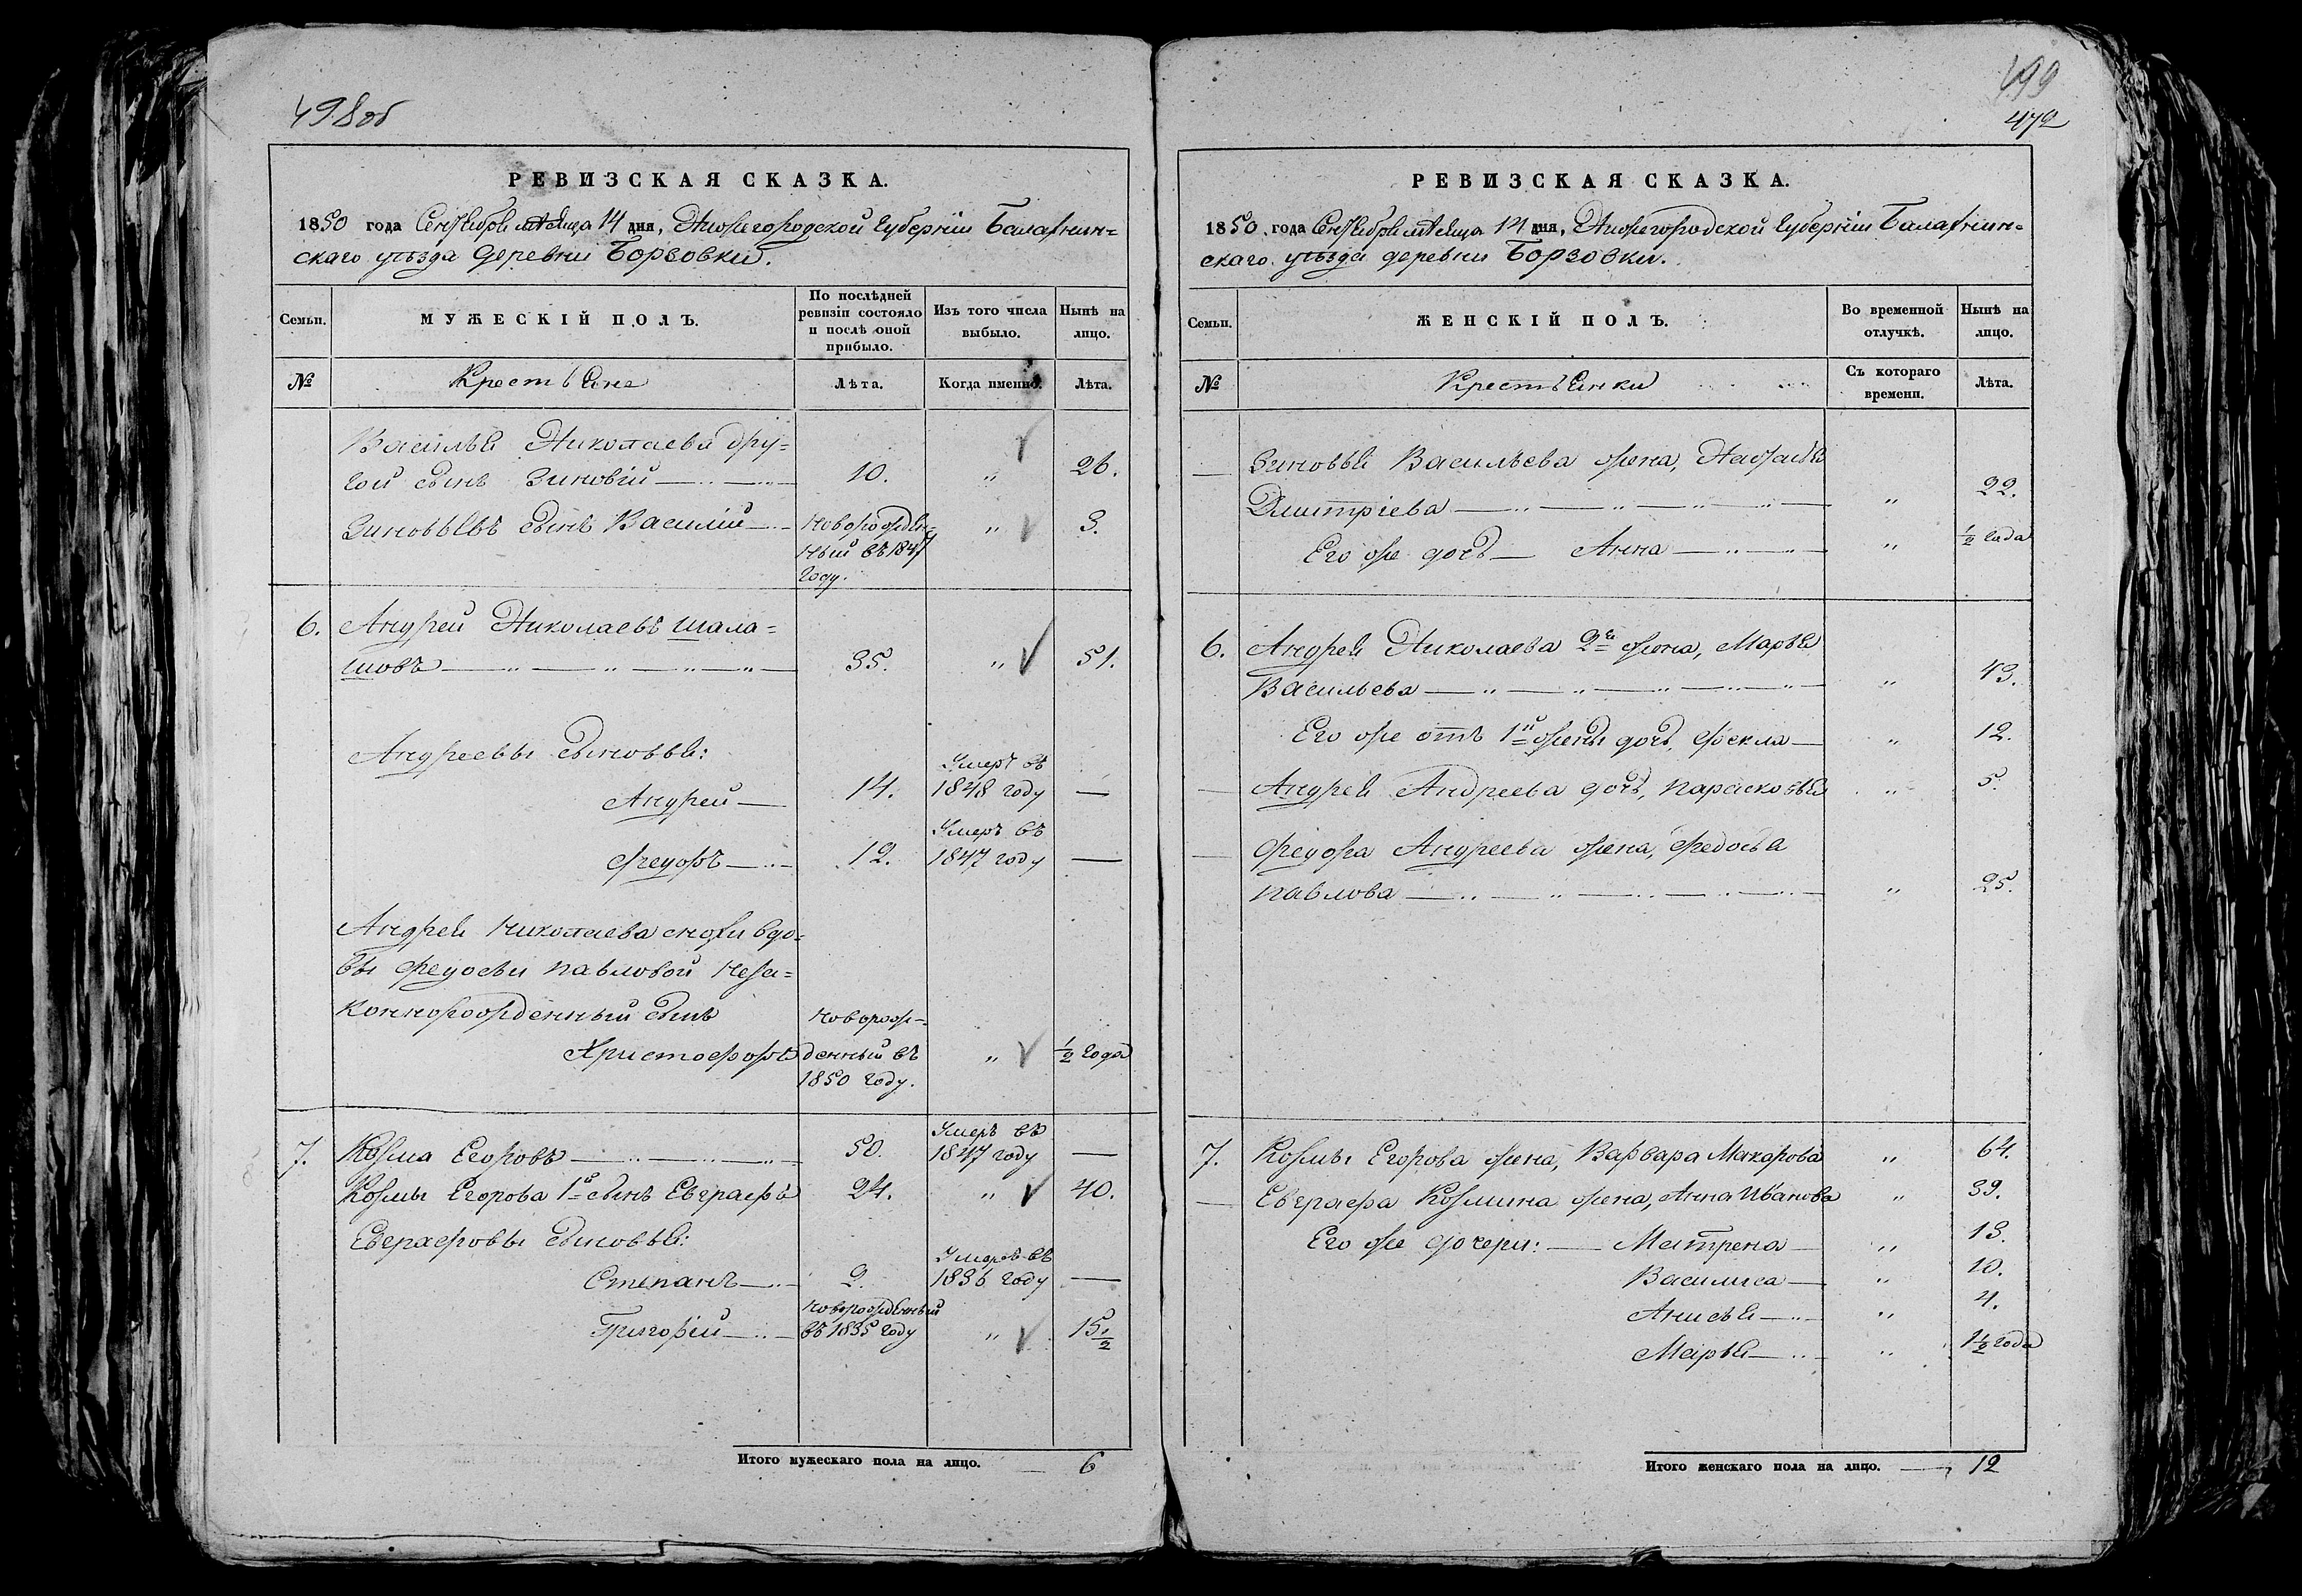 498об
РЕВИЗСКАЯ СКАЗКА.
1850 года Сентября мѣсяца 14 дня, Нижегородской Губерніи Балахнин=
скаго уѣзда деревни Борзовки.
Семьи.
МУЖЕСКІЙ ПОЛЪ.
По послѣдней ревизіи состояло и послѣ оной прибыло.
Изъ того числа выбыло.
Нынѣ на лицо.
№
Крестьяне
Лѣта.
Когда именно.
Лѣта.
Василья Николаева дру=
гой сынъ Зиновій 10. „ 26.
Зиновьевъ сынъ Василій новорожден= „ 3.
ный въ 1847
году.
6. Андрей Николаевъ Шала=
шовъ 35. „ 51.
Андреевы сыновья:
Умеръ въ
Андрей 14. 1848 году —
Умеръ въ
Федоръ 12. 1847 году —
Андрея Николаева снохи вдо=
вы Федосьи Павловой неза=
коннорожденный сынъ новорож=
Христофоръ денный въ „ ½ года
1850 году.
Умеръ въ
7. Козма Егоровъ 50. 1847 году —
Козмы Егорова 1й сынъ Евграфъ 24. „ 40.
Евграфовы сыновья:
Умеръ въ
Степанъ 2. 1836 году —
новорожденный
Григорій въ 1835 году „ 15½
Итого мужескаго пола на лицо. — 6
499
472
РЕВИЗСКАЯ СКАЗКА.
1850 года Сентября мѣсяца 14 дня, Нижегородской Губерніи Балахнин=
скаго уѣзда деревни Борзовки.
Семьи.
ЖЕНСКІЙ ПОЛЪ.
Во временной отлучкѣ.
Нынѣ на лицо.
№
Крестьянки
Съ котораго времени.
Лѣта.
Зиновья Васильева жена, Настасья
Дмитріева „ 22.
Его же дочь Анна „ ½ года
6. Андрея Николаева 2я жена, Марья
Васильева „ 43.
Его же отъ 1й жены дочь Фекла „ 12.
Андрея Андреева дочь, Парасковья „ 5.
Федора Андреева жена, Федосья
Павлова „ 25.
7. Козмы Егорова жена, Варвара Макарова „ 64.
Евграфа Козмина жена, Анна Иванова „ 39.
Его же дочери: Матрена „ 13.
Василиса „ 10.
Анисья „ 4.
Марья „ 1½ года
Итого женскаго пола на лицо. — 12